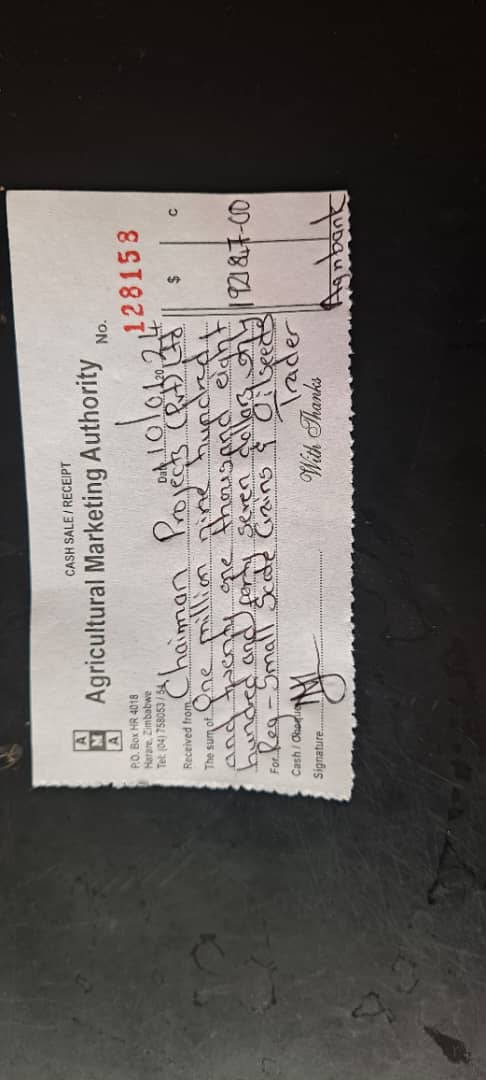 CASH SALE / RECEIPT
A
M
A
Agricultural Marketing Authority
P.O. Box HR 4018
Harare, Zimbabwe
Tel: (04) 758053 / 54
No. 128158
Date 10/01/2024
Received from Chairman Projects (Pvt) Ltd
$ c
The sum of One million nine hundred
and twenty one thousand eight
hundred and forty seven dollars only
1921847-00
For Reg - Small Scale Grains & Oilseeds
Trader
Cash / Cheque
With Thanks
Signature
Agribank